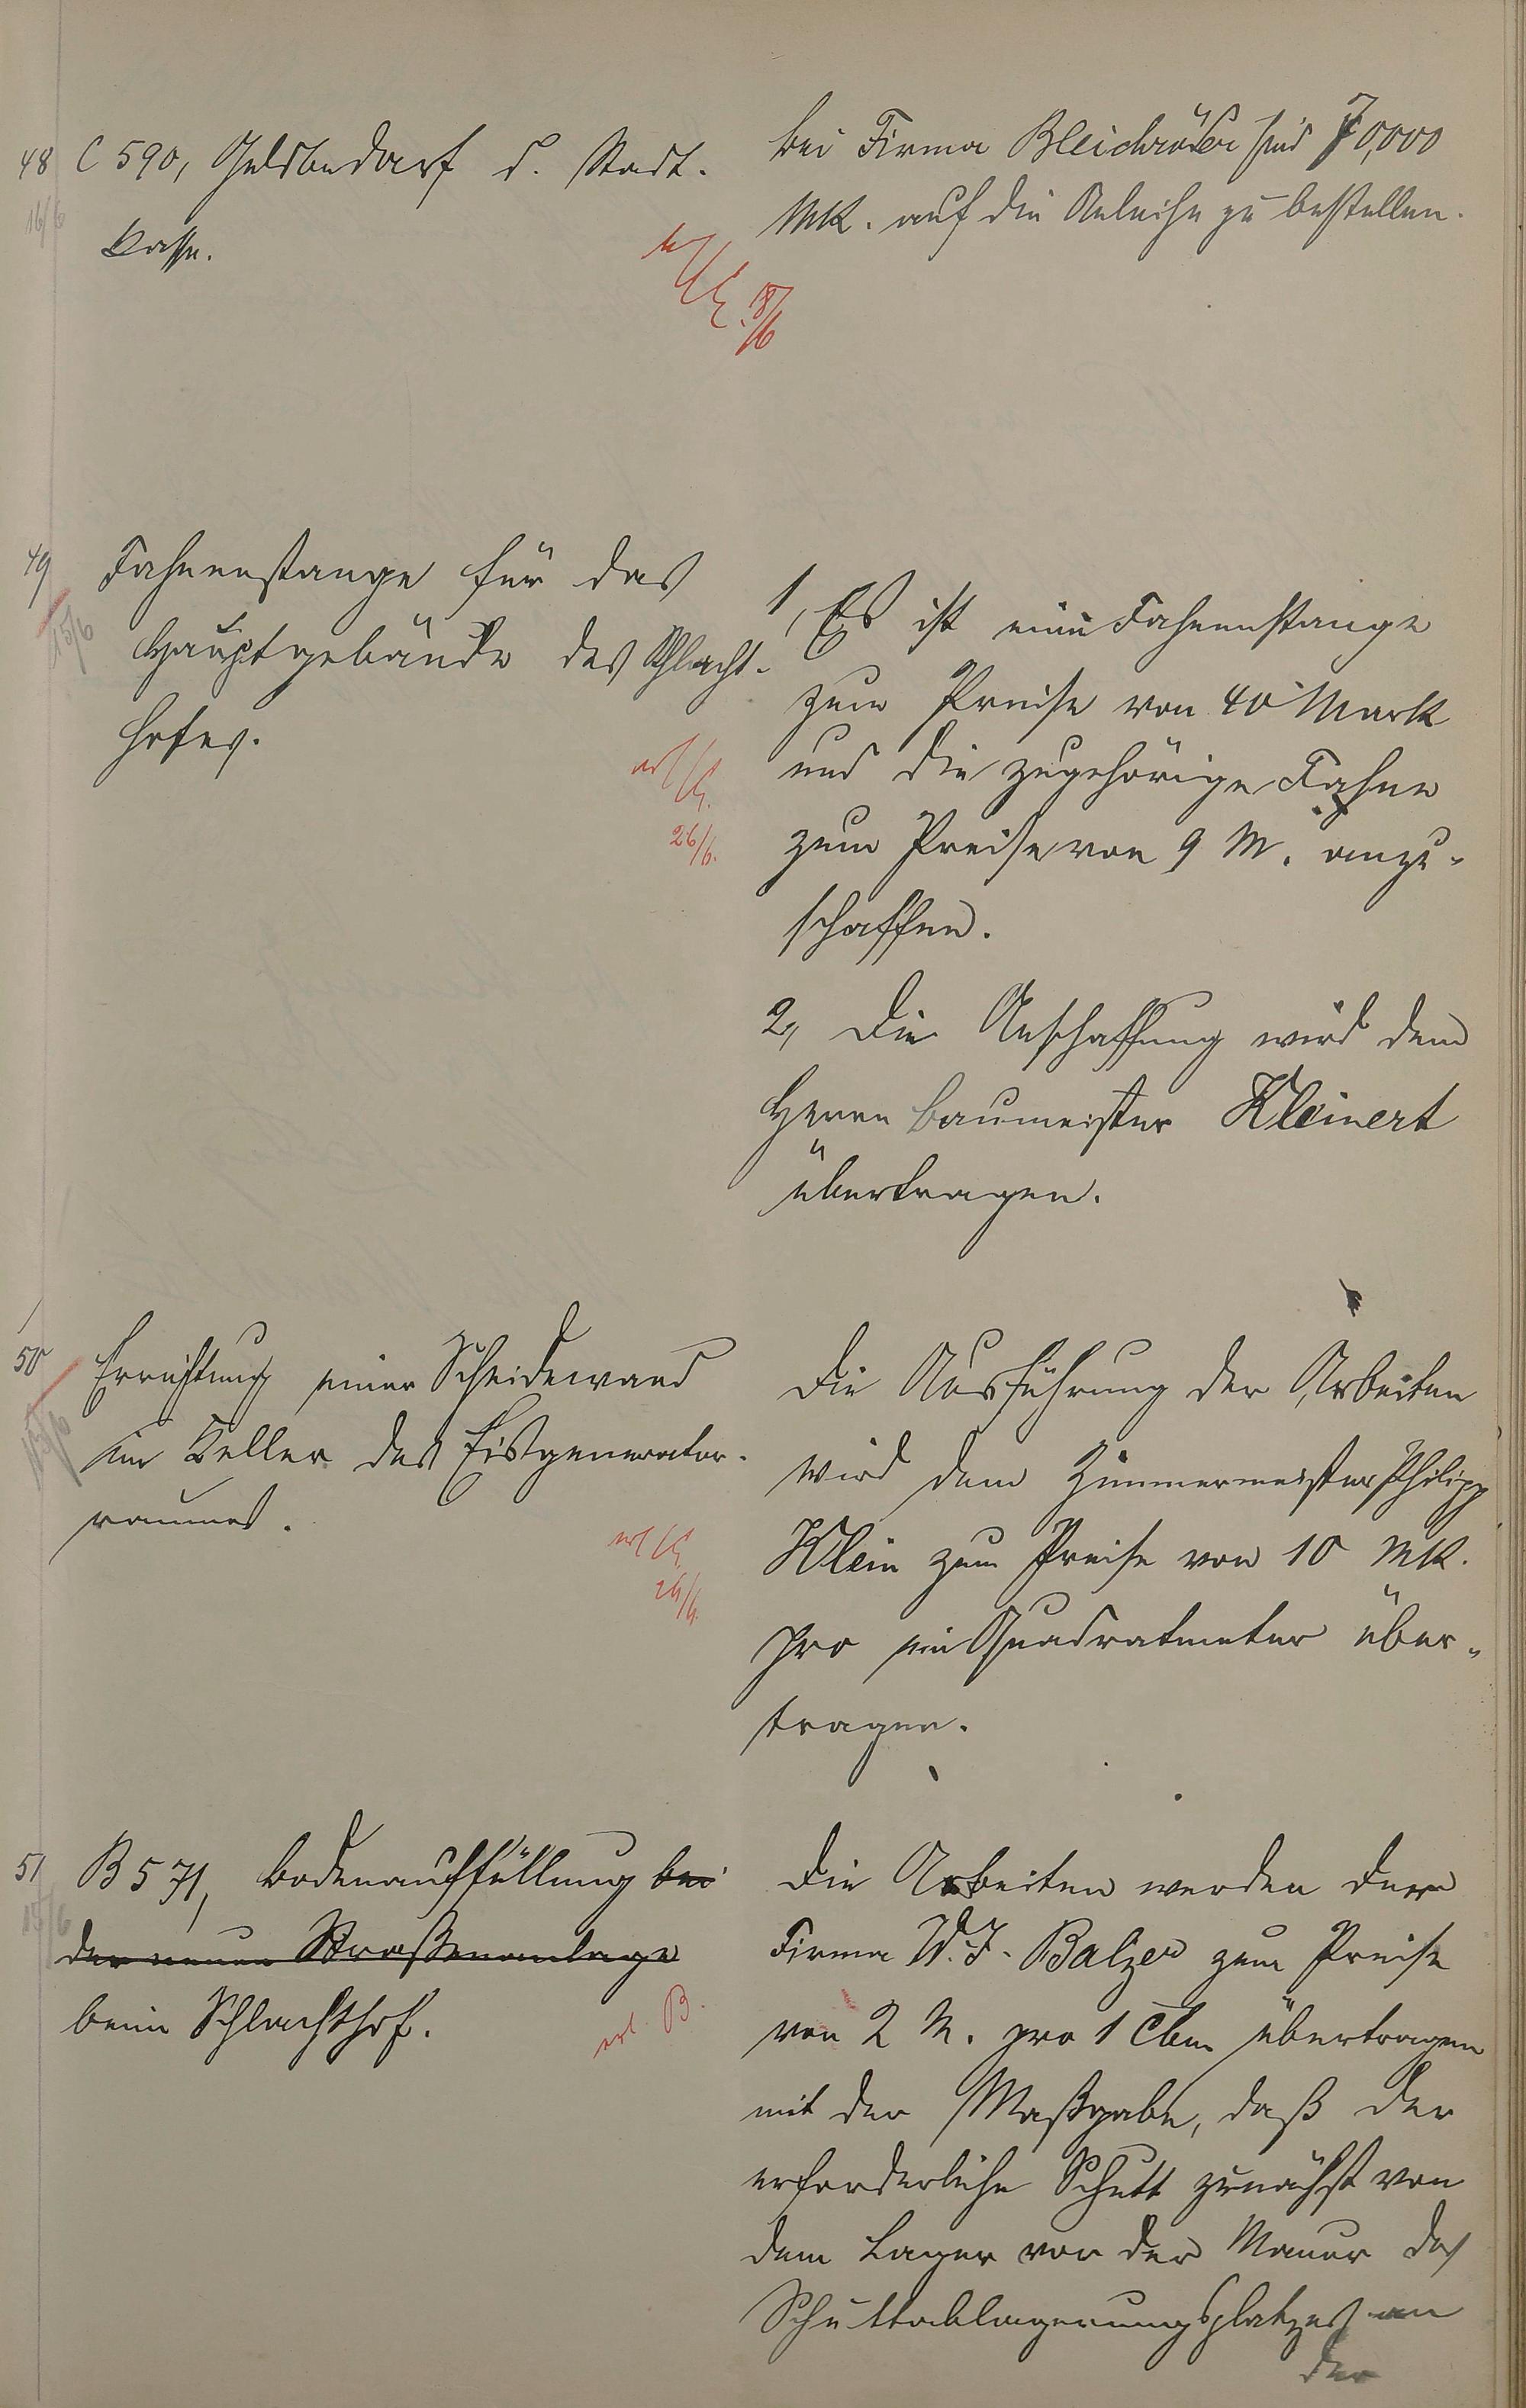 48 C 590, Geldbedarf d. Stadt-
16/6
kasse.
bei Firma Bleichröder sind 70,000
Mk. auf die Anleihe zu bestellen.
18/6
49 Fahnenstange für das
15/6
Hauptgebäude des Schlacht-
hofes.
erl.
26/6.
1, Es ist eine Fahnenstange
zum Preise von 40 Mark
und die zugehörige Fahne
zum Preise von 9 M. anzu-
schaffen.
2, Die Anschaffung wird dem
Herrn Baumeister Kleinert
übertragen.
50 Errichtung einer Scheidewand
15/6
im Keller des Eisgenerator-
raumes.
erl.
26/6.
Die Ausführung der Arbeiten
wird dem Zimmermeister Philipp
Klein zum Preise von 10 Mk.
pro ein Quadratmeter über-
tragen.
51 B 571, Bodenauffüllung bei
15/6
der neuen Straßenanlage
beim Schlachthof.
erl. B.
Die Arbeiten werden der
Firma W. J. Balzer zum Preise
von 2 M. pro 1 Cbm übertragen
mit der Maßgabe, daß der
erforderliche Schutt zunächst von
dem Lager vor der Mauer des
Schuttablagerungsplatzes an
der